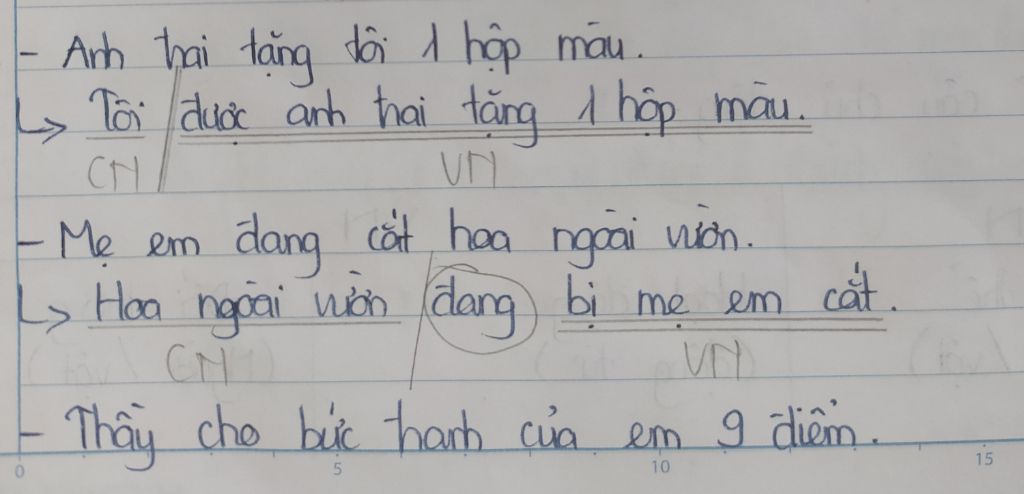 - Anh trai tặng tôi 1 hộp màu.
↳ Tôi / được anh trai tặng 1 hộp màu.
CN VN
- Mẹ em đang cắt hoa ngoài vườn.
↳ Hoa ngoài vườn / đang bị mẹ em cắt.
CN VN
- Thầy cho bức tranh của em 9 điểm.
0 5 10 15